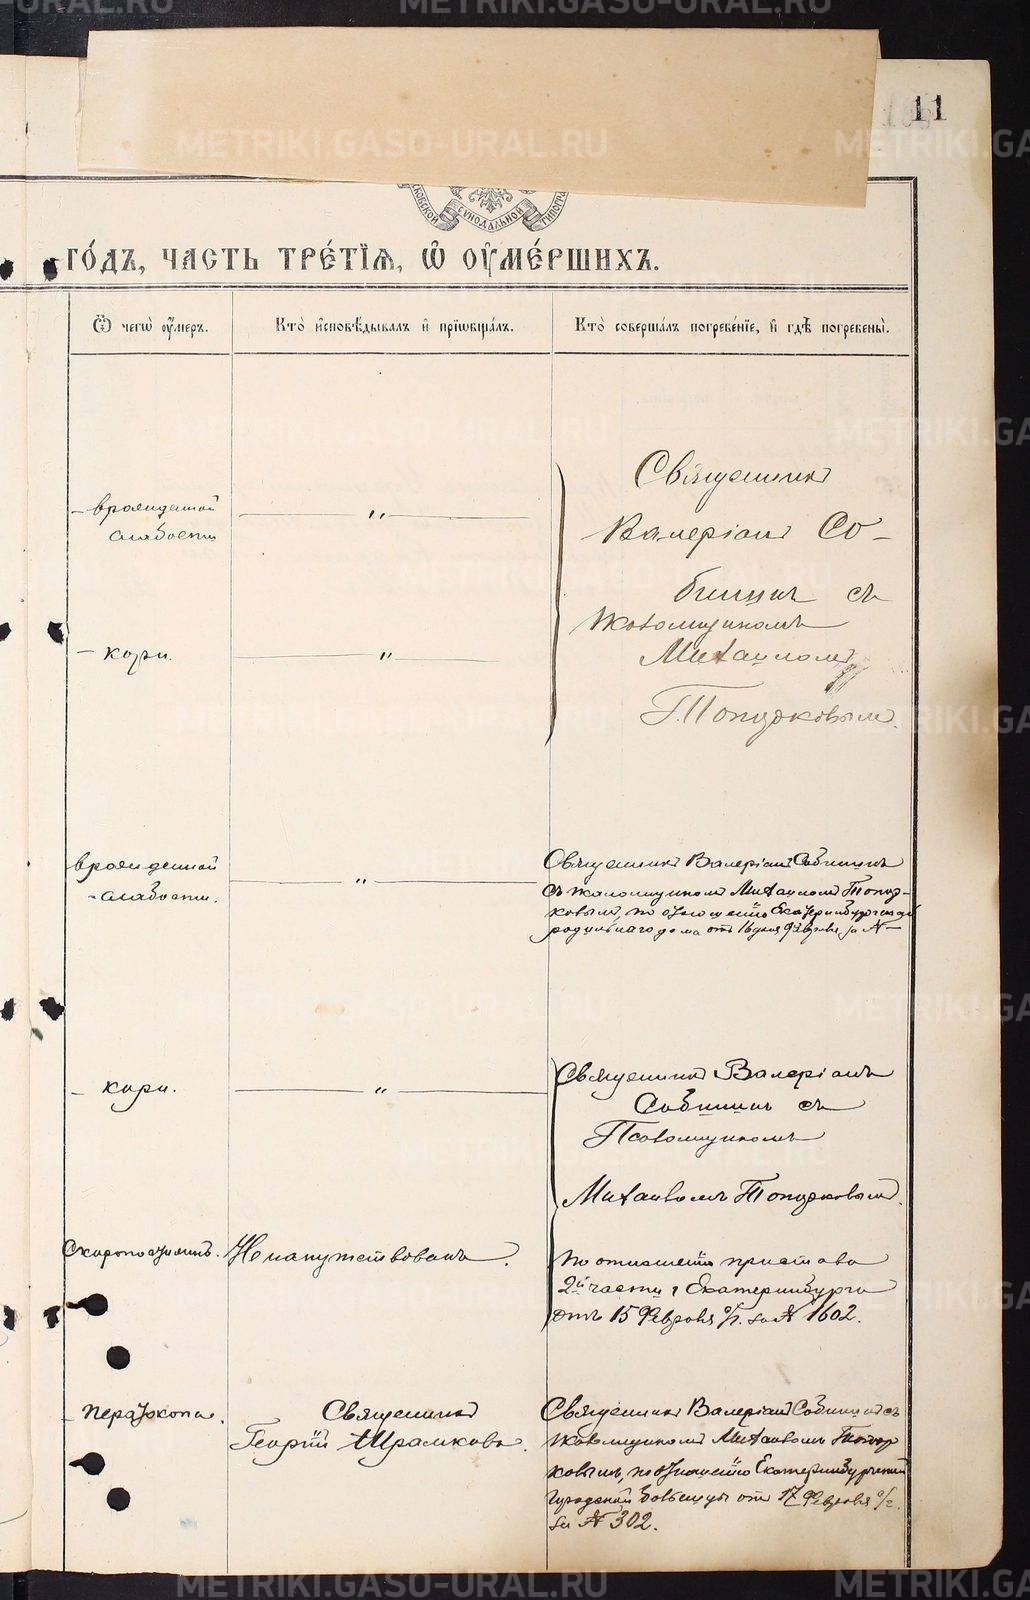 METRIKI.GASO-URAL.RU
11
МОСКОВСКОЙ СѴНОДАЛЬНОЙ
ГО́ДЪ, ЧАСТЬ ТРЕ́ТІѦ, Ѽ ОУ҆МЕ́РШИХЪ.
Ѿ чегѡ̀ оу҆́меръ.
Кто̀ и҆сповѣ́дывалъ и҆ прїѡбща́лъ.
Кто̀ соверша́лъ погребе́нїе, и҆ гдѣ̀ погребены̀.
врожденной
слабости
— " —
Священникъ
Валеріанъ Со-
бининъ съ
Псаломщикомъ
Михаиломъ
Топорковымъ.
- кори.
— " —
врожденной
слабости.
— " —
Священникъ Валеріанъ Собининъ
съ псаломщикомъ Михаиломъ Топор-
ковымъ, по отношенію Екатеринбургскаго
родильнаго дома отъ 16 дня Февраля за №
- кори.
— " —
Священникъ Валеріанъ
Собининъ съ
Псаломщикомъ
Михаиломъ Топорковымъ.
Скоропостижно.
Не напутствованъ.
по отношенію пристава
2й части г Екатеринбурга
отъ 15 Февраля с/г. за № 1602.
Священникъ
Георгій
Священникъ Валеріанъ Собининъ съ
Псаломщикомъ Михаиломъ Топор
ковымъ, по отношенію Екатеринбургской
Городской больницы отъ 17 Февраля с/г.
за № 302.